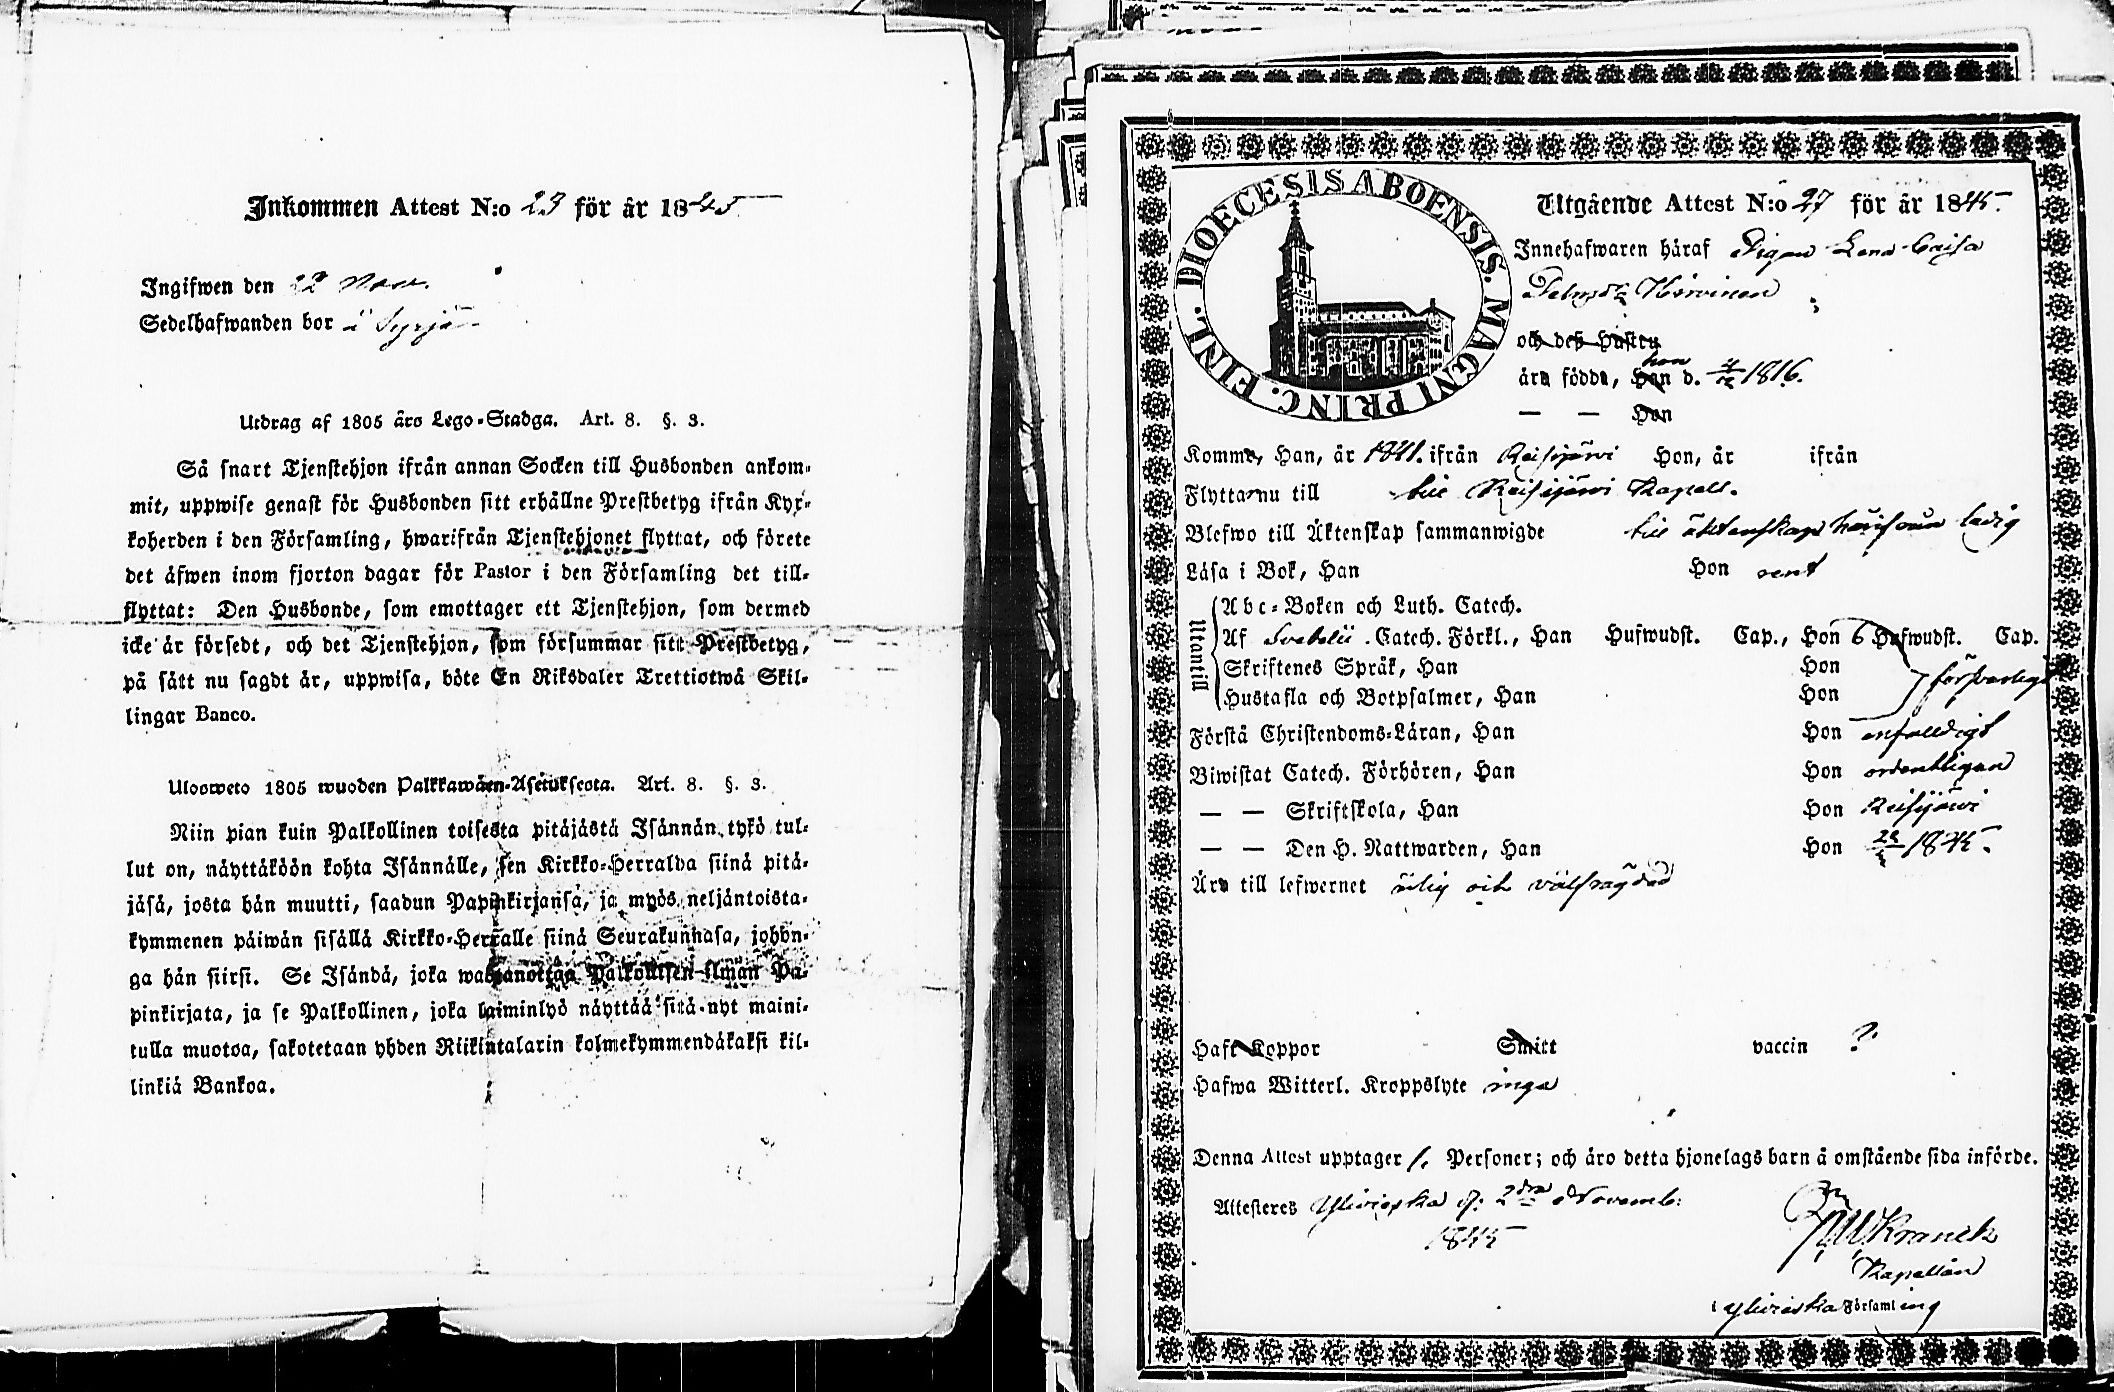 Inkommen Attest N:o 23 för år 1845
Ingifwen den 22 Nov.
Sedelhafwanden bor i Syrjä
Utdrag af 1805 års Lego-Stadga. Art. 8. §. 3.
Så snart Tjenstehjon ifrån annan Socken till Husbonden ankom-
mit, uppwise genast för Husbonden sitt erhållne Prestbetyg ifrån Kyr-
koherden i den Församling, hwarifrån Tjenstehjonet flyttat, och förete
det äfwen inom fjorton dagar för Pastor i den Församling det till-
flyttat: Den Husbonde, som emottager ett Tjenstehjon, som dermed
icke är försedt, och det Tjenstehjon, som försummar sitt Prestbetyg,
på sätt nu sagdt är, uppwisa, böte En Riksdaler Trettiotwå Skil-
lingar Banco.
Uloosweto 1805 wuoden Palkkawäen-Asetuksesta. Art. 8. §. 3.
Niin pian kuin Palkollinen toisesta pitäjästä Isännän tykö tul-
lut on, näyttäköön kohta Isännälle, sen Kirkko-Herralda siinä pitä-
jäsä, josta hän muutti, saadun Papinkirjansa, ja myös neljäntoista-
kymmenen päiwän sisällä Kirkko-Herralle siinä Seurakunnasa, johon-
ga hän siirsi. Se Isändä, joka wastanottaa Palkollisen ilman Pa-
pinkirjata, ja se Palkollinen, joka laiminlyö näyttää sitä nyt maini-
tulla muotoa, sakotetaan yhden Riikintalarin kolmekymmendäkaksi kil-
linkiä Bankoa.
DIOECESIS ABOENSIS. MAGNI PRINC. FINL.
Utgående Attest N:o 27 för år 1845.
Innehafwaren häraf Pigan Lena Caisa
Hirvinen
och des Hustru
äro födde, Han hon d. 1816.
— — Hon
Komme, Han, år 1841. ifrån Reisijärvi Hon, år ifrån
Flyttar nu till till Reisijärvi Kapell.
Blefwo till Äktenskap sammanwigde till äktenskap härifrån ledig
Läsa i Bok, Han Hon rent
Utantill
Abc-Boken och Luth. Catech.
Af Svebelii Catech. Förkl., Han Hufwudst. Cap., Hon 6 Hufwudst. Cap.
Skriftenes Språk, Han Hon
Hustafla och Botpsalmer, Han Hon försvarligt
Förstå Christendoms-Läran, Han Hon enfaldigt
Biwistat Catech. Förhören, Han Hon ordentligen
— — Skriftskola, Han Hon Reisijärvi
— — Den H. Nattwarden, Han Hon 1845.
Äro till lefwernet ärlig och välfrägdad
Haft Koppor Smitt vaccin ?
Hafwa Witterl. Kroppslyte inga
Denna Attest upptager 1. Personer; och äro detta hjonelags barn å omstående sida införde.
Attesteres Ylivieska d: 2dra Novemb:
1845
Kranck
Kapellan
i Ylivieska Församling